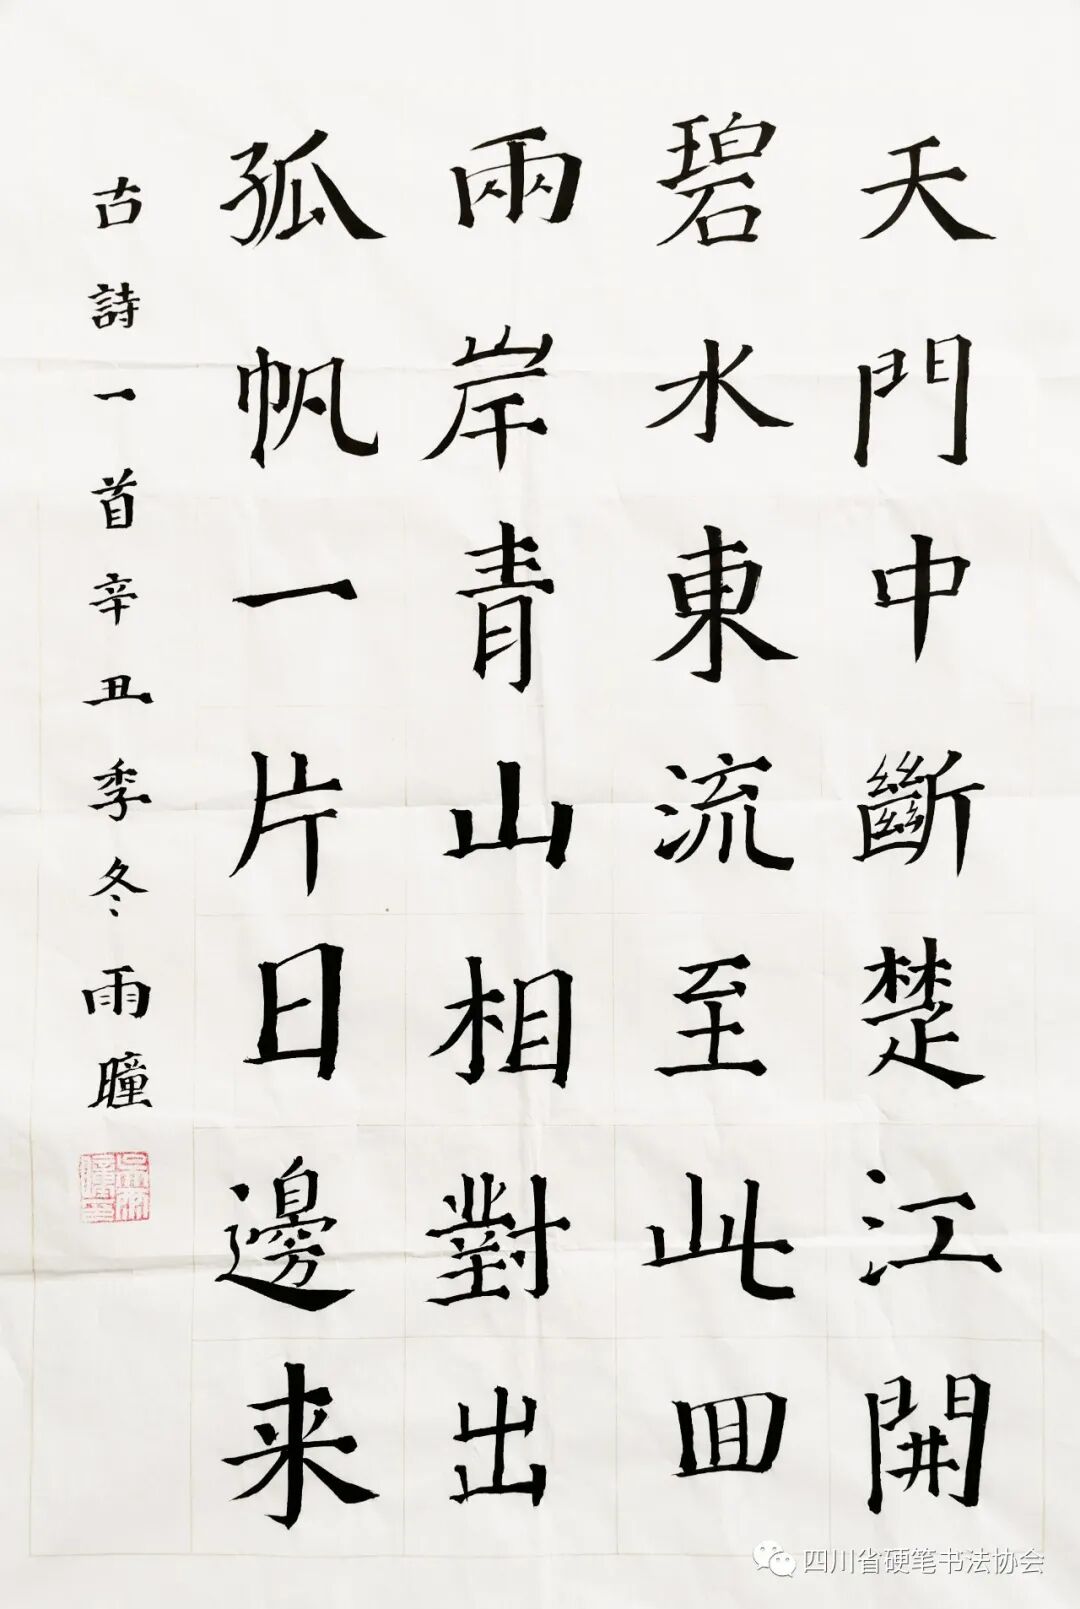 天門中斷楚江開
碧水東流至此回
兩岸青山相對出
孤帆一片日邊来
古詩一首辛丑季冬雨曈
四川省硬笔书法协会